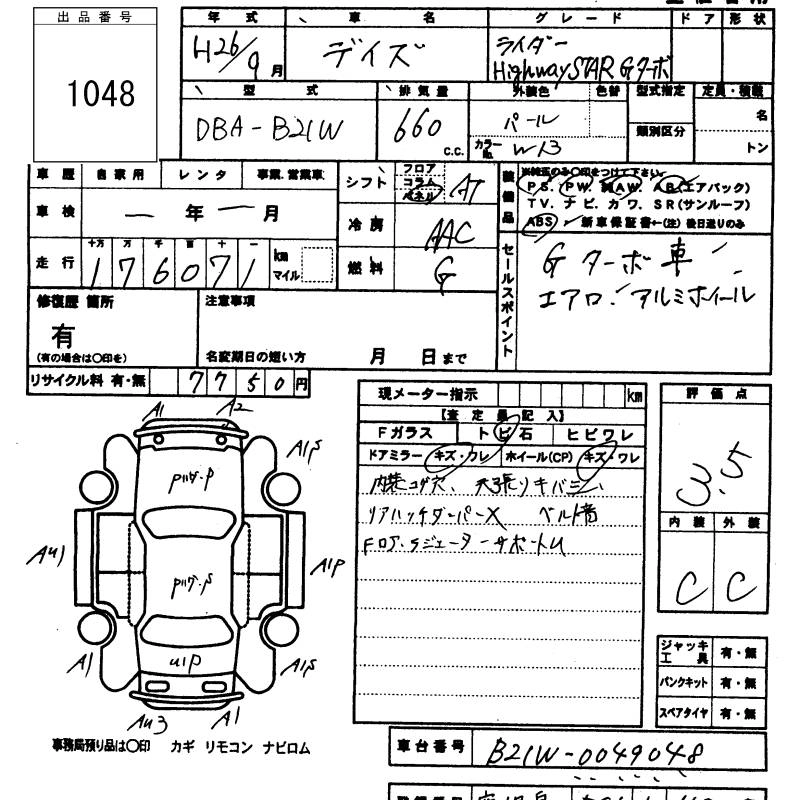 出品番号
1048
年式
H26/9月
車名
デイズ
グレード
ライダー
HighwaySTAR Gターボ
ドア
形状
型式
DBA-B21W
排気量
660 c.c.
外装色
色替
パール
カラーNo.
W13
型式指定
類別区分
定員・積載
名
トン
車歴
自家用
レンタ
事業.営業車
車検
ー年ー月
走行
十万 万 千 百 十 一
1 7 6 0 7 1
km
マイル
シフト
フロア
コラム
パネル
AT
冷房
AAC
燃料
G
装備品
※純正のみ○印をつけて下さい。
PS. PW. AW. AB(エアバック)
TV. ナビ. カワ. SR(サンルーフ)
ABS 新車保証書←(注) 後日送りのみ
セールスポイント
Gターボ車
エアロ. アルミホイール
修復歴 箇所
有
(有の場合は○印を)
注意事項
名変期日の短い方 月 日まで
リサイクル料 有・無 7750円
現メーター指示 km
【査定員記入】
Fガラス
トビ石
ヒビワレ
ドアミラー
キズ・ワレ
ホイール(CP)
キズ・ワレ
内装コゲ穴、天張りキバミ
リアハッチダンパーX ベルト音
Fロア.ラジエーターサポートU
評価点
3.5
内装
外装
C
C
A1
A2
A1P
AU1
A1P
A1
A1P
AU3
A1
U1P
ジャッキ工具 有・無
パンクキット 有・無
スペアタイヤ 有・無
事務局預り品は○印 カギ リモコン ナビロム
車台番号
B21W-0049048